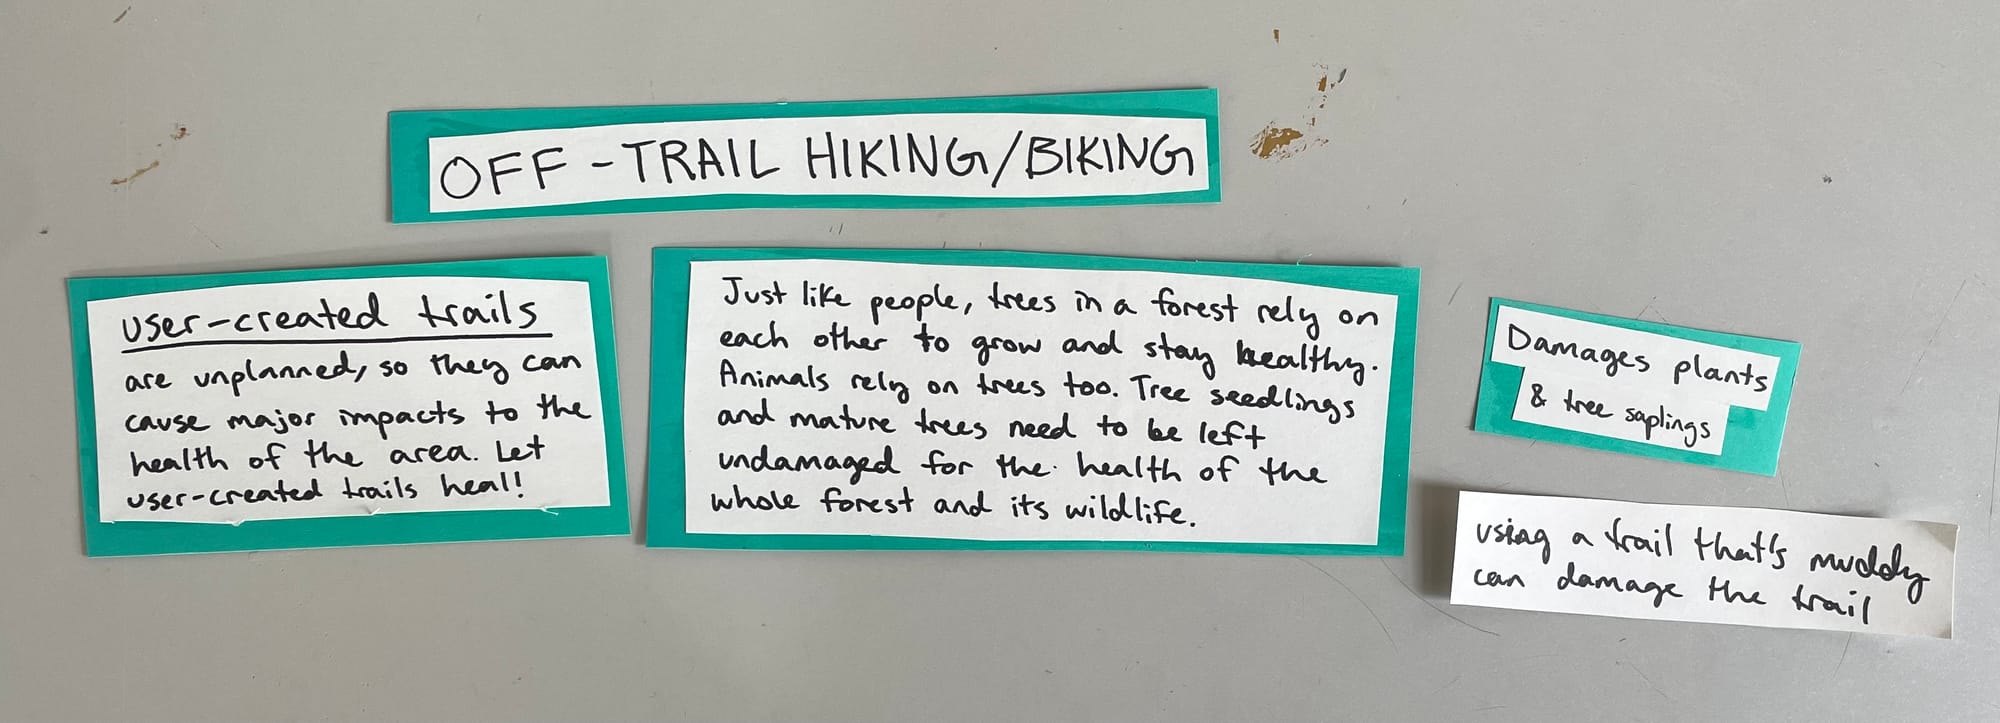 OFF-TRAIL HIKING/BIKING
user-created trails
are unplanned, so they can
cause major impacts to the
health of the area. Let
user-created trails heal!
Just like people, trees in a forest rely on
each other to grow and stay healthy.
Animals rely on trees too. Tree seedlings
and mature trees need to be left
undamaged for the health of the
whole forest and its wildlife.
Damages plants
& tree saplings
using a trail that's muddy
can damage the trail